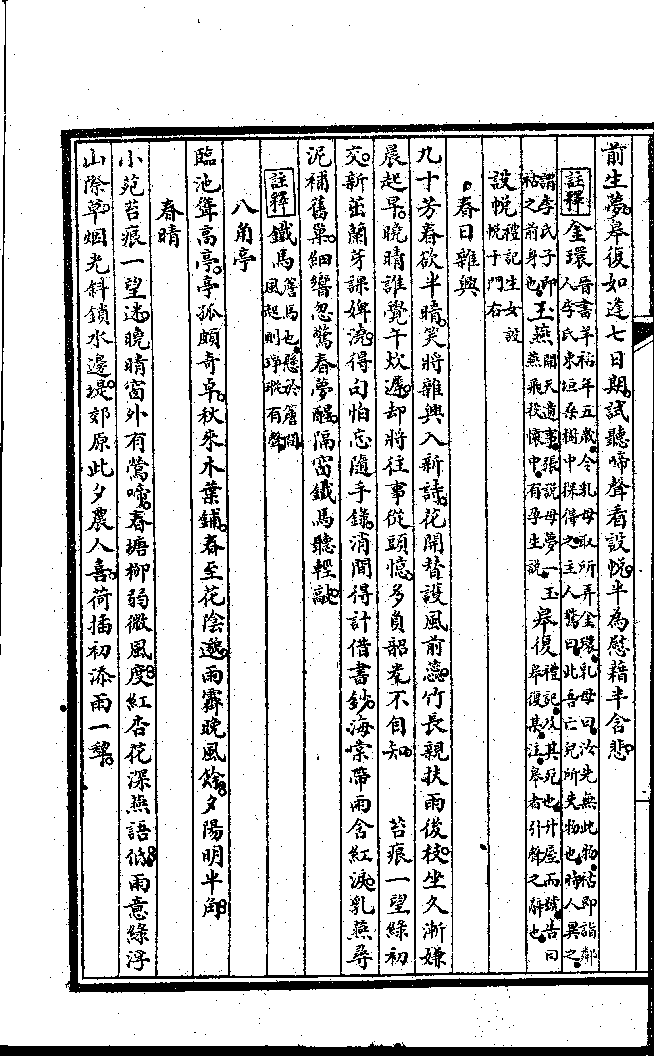 前生夢。皋復如逢七日期。試聽啼聲看設帨。半為慰藉半含悲。
註釋 金環 晉書羊祜年五歲。令乳母取所弄金環。乳母曰。汝先無此物。祜即詣鄰
人李氏東垣桑樹中探得之。主人驚曰。此吾亡兒所失物也。時人異之。
謂李氏子即祜之前身也。 玉燕 開天遺事。張說母夢一玉燕飛投懷中。有孕生說。 皋復 禮記。及其死也。升屋而號。告曰皋復某。注。皋者引聲之辭也。
設帨 禮記生女設帨于門右
春日雜興
九十芳春欲半時。笑將雜興入新詩。花開替護風前蕊。竹長親扶雨後枝。坐久漸嫌
晨起早。曉晴誰覺午炊遲。却將往事從頭憶。多負韶光不自知。 苔痕一望綠初
交。新茁蘭芽課婢澆。得句怕忘隨手錄。消閒得計借書鈔。海棠帶雨含紅淚。乳燕尋
泥補舊巢。細響忽驚春夢醒。隔窗鐵馬聽輕敲。
註釋 鐵馬 簷馬也。懸於簷間風起則琤瑽有聲
八角亭
臨池聳高亭。亭孤頗奇卓。秋來木葉鋪。春至花陰邈。雨霽晚風餘。夕陽明半角。
春晴
小苑苔痕一望迷。曉晴窗外有鶯啼。春塘柳弱微風度。紅杏花深燕語低。雨意綠浮
山際草。烟光斜鎖水邊堤。郊原此夕農人喜。荷插初添雨一犂。